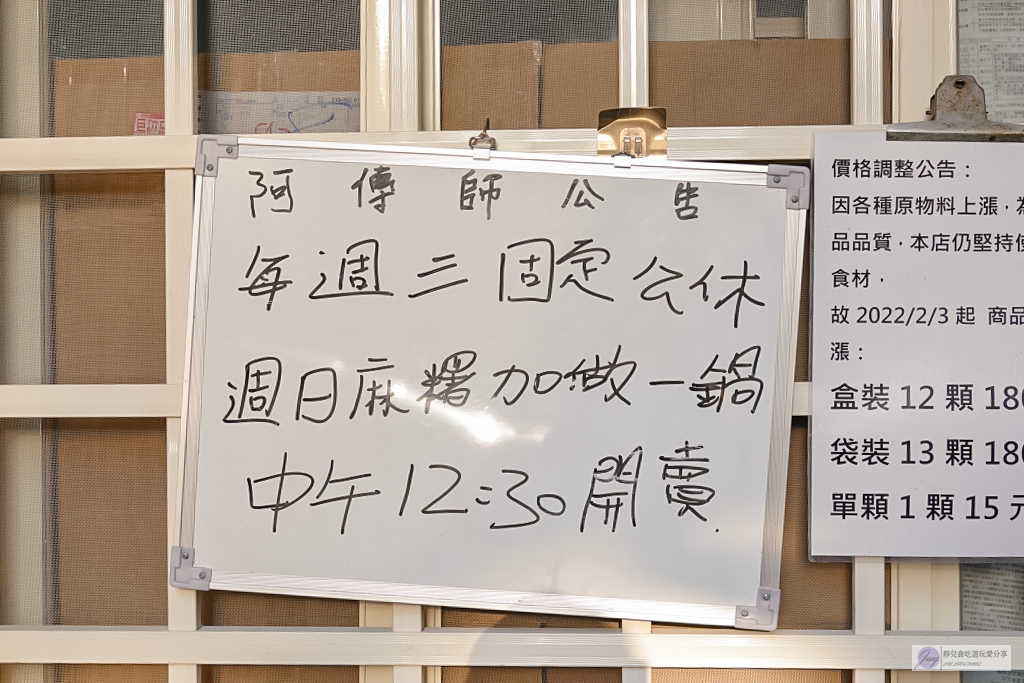 阿傳師公告
每週三固定公休
週日麻糬加做一鍋
中午12:30開賣.
價格調整公告：
因各種原物料上漲，為
品品質，本店仍堅持使
食材，
故 2022/2/3 起 商品
漲：
盒裝 12 顆 180
袋裝 13 顆 180
單顆 1 顆 15 元
靜兒貪吃遊玩愛分享